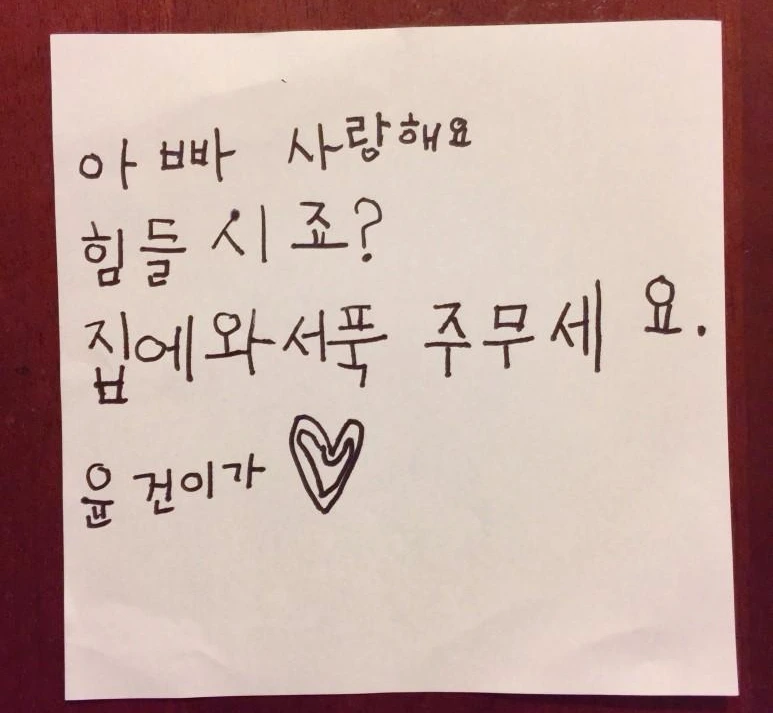 아빠 사랑해요
힘들시죠?
집에와서푹 주무세요.
윤건이가